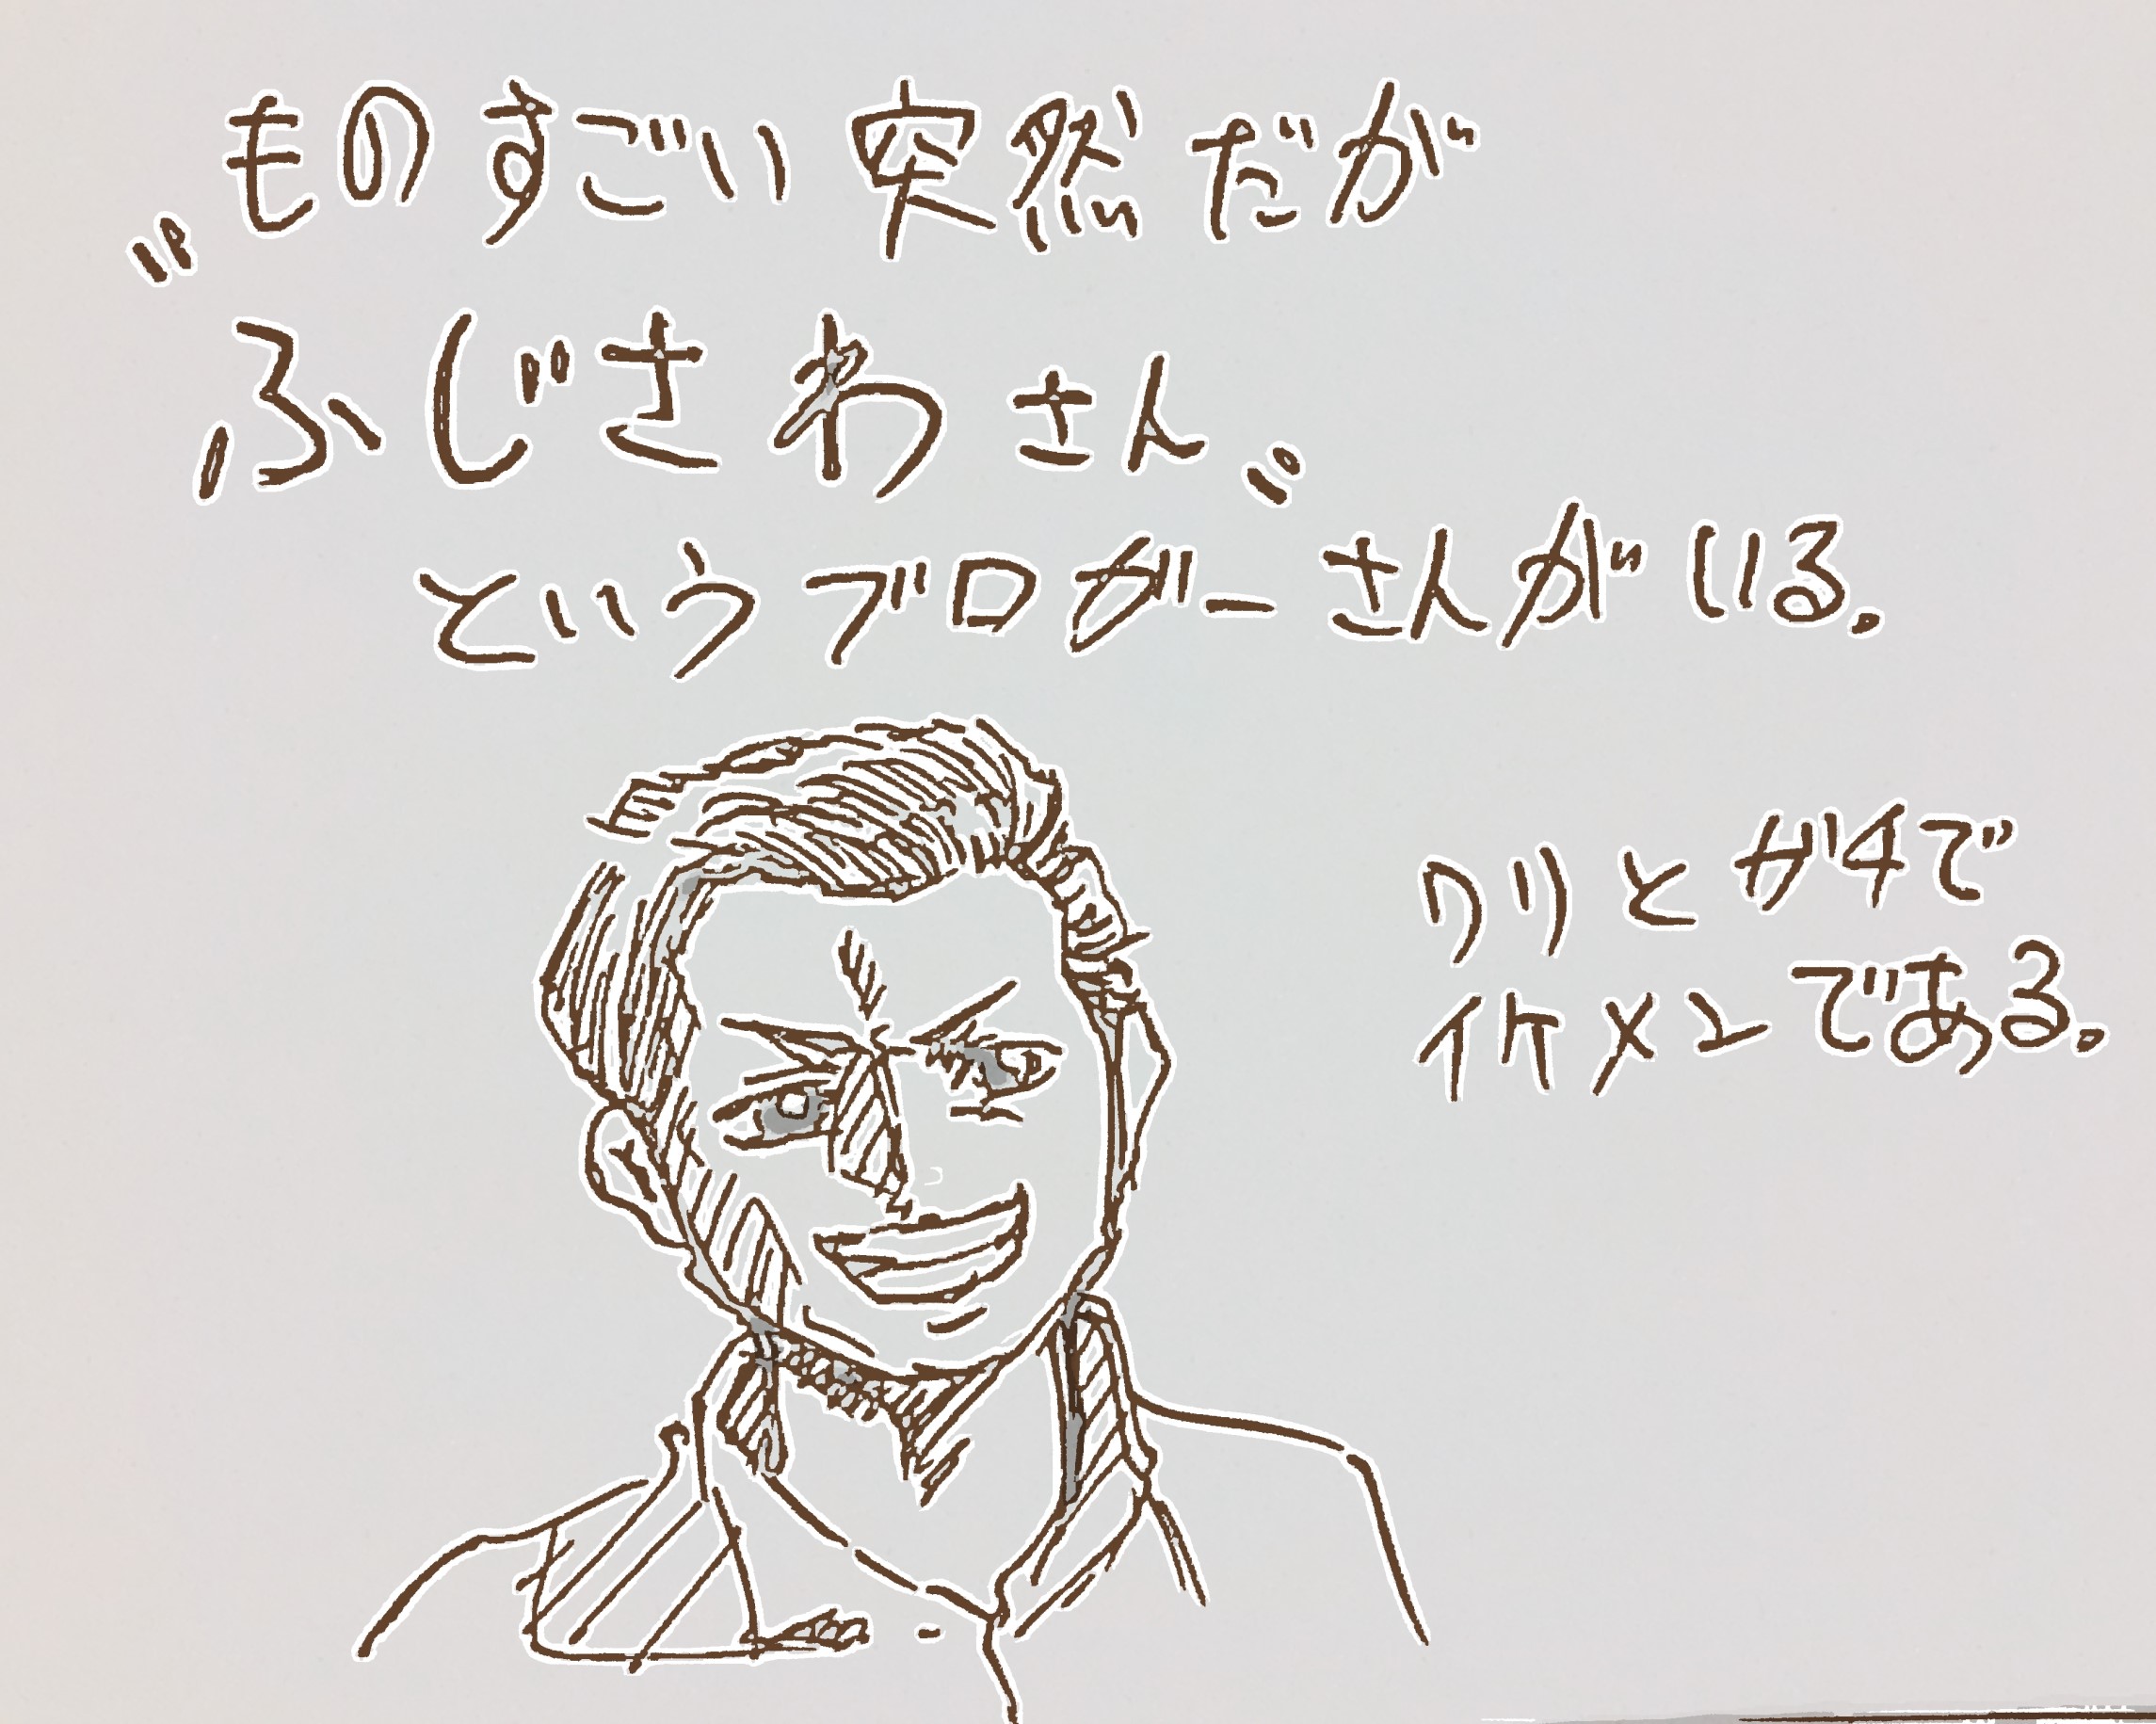 ものすごい突然だが
"ふじさわさん"
というブロガーさんがいる.
ワリとガチで
イケメンである.